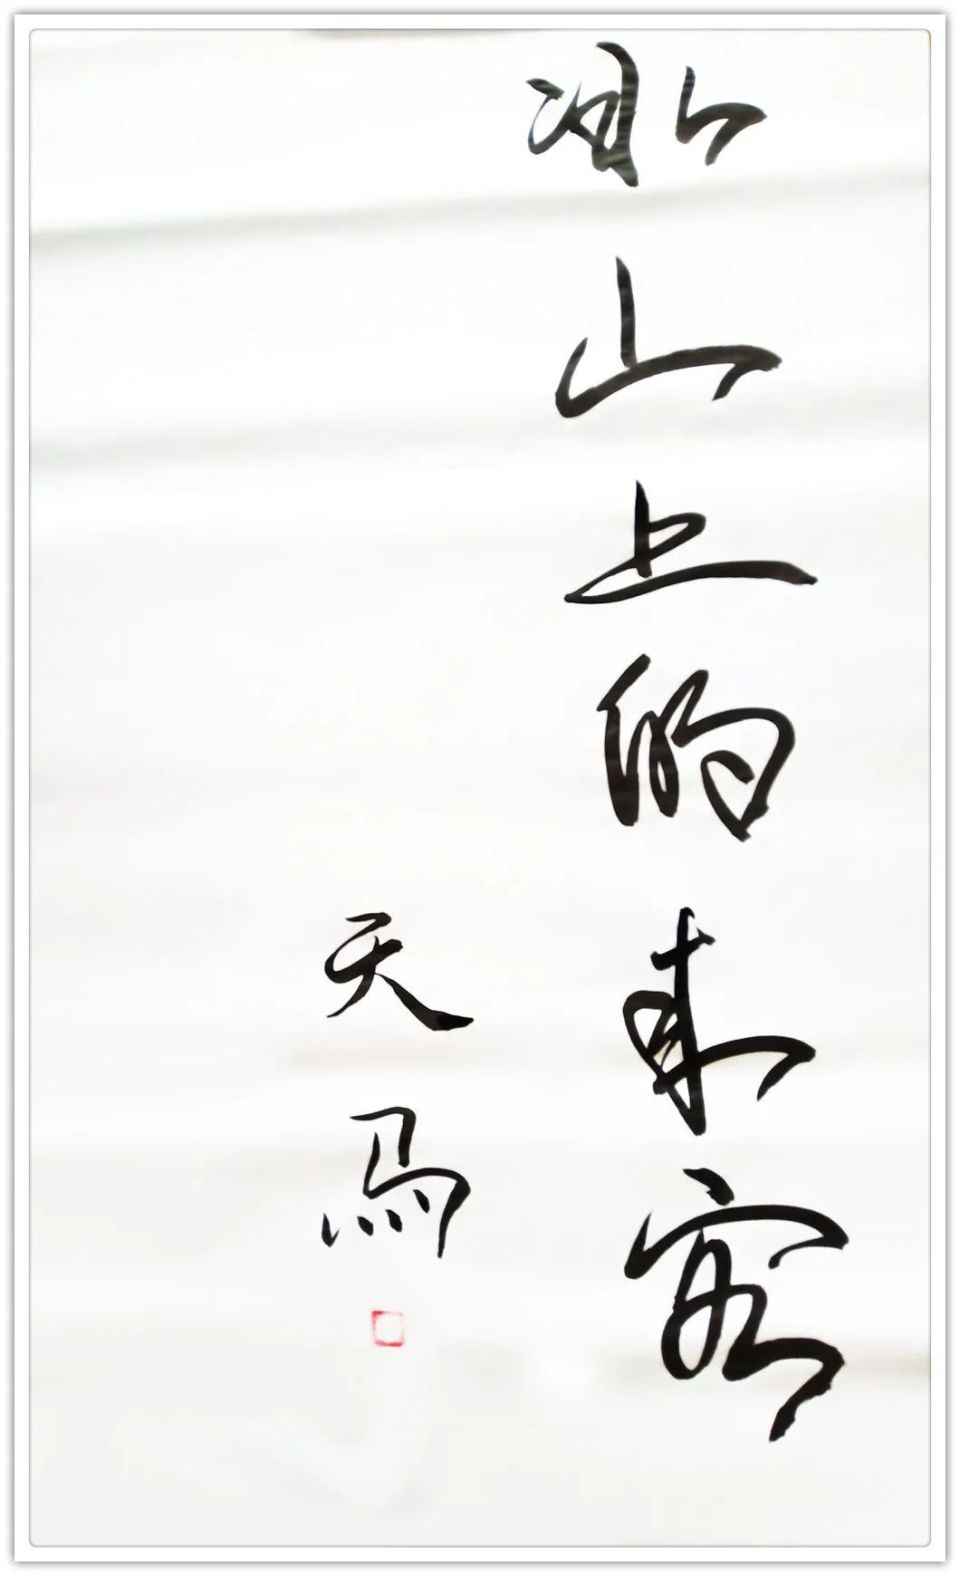 冰山上的来客
天马